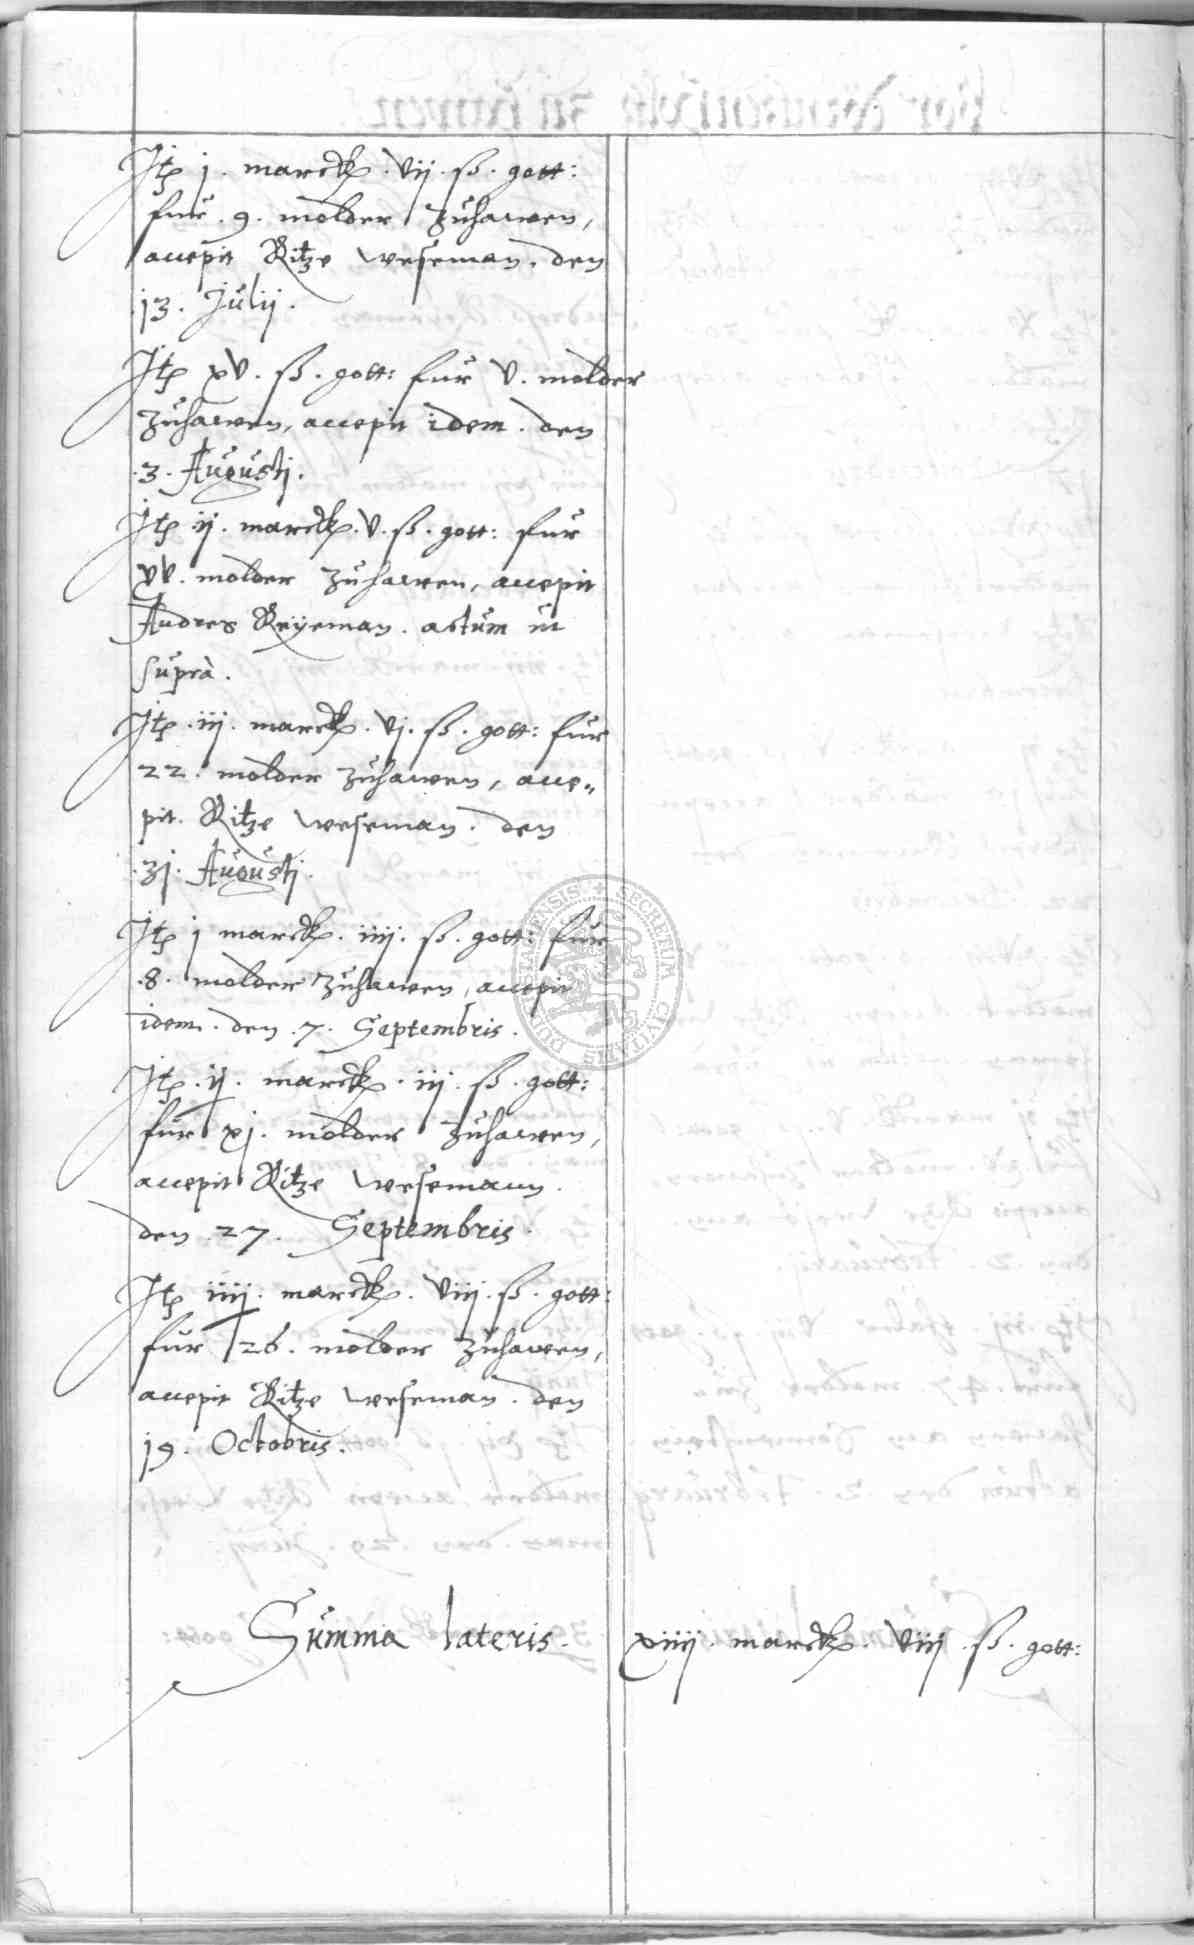 Jtē j. marck. vij. ß. gott:
für. 9. molder zuhawen,
accepit Ritze Weseman. den
.13. Julij.
Jtē xv. ß. gott: für v. molder
zuhawen, accepit idem. den
.3. Augusti.
Jtē ij. marck. v. ß. gott: für
xv. molder zuhawen, accepit
Andres Reyeman. actum ut
suprà.
Jtē .iij. marck. vj. ß. gott: für
22. molder zuhawen, acce„
pit. Ritze Weseman. den
.31. Augusti.
Jtē j marck. iiij. ß. gott: für
.8. molder zuhawen, accepit
idem. den .7. Septembris.
Jtē .ij. marck. iij. ß. gott:
für xj. molder zuhawen,
accepit Ritze Wesemann.
den .27. Septembris.
Jtē iiij. marck. viij. ß. gott:
für 26. molder zuhawen,
accepit Ritze Weseman. den
19. Octobris.
Summa lateris. xiiij. marck. viij. ß. gott:
SECRETUM CIVITATIS